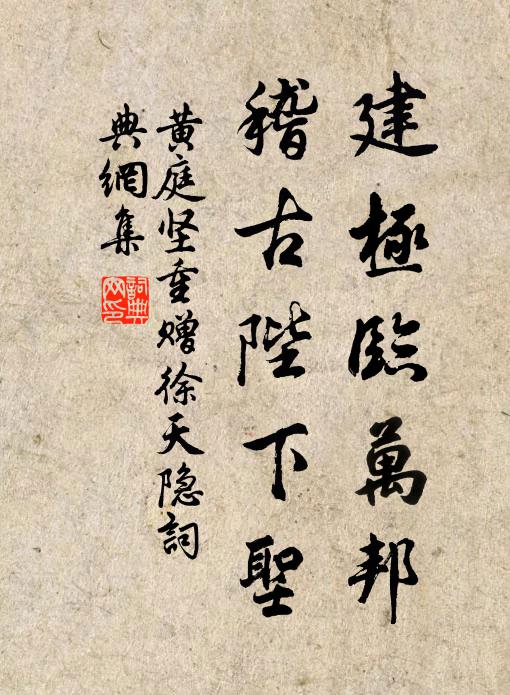 建極臨萬邦
稽古陛下聖
黄庭坚重赠徐天隐詞
典網集
詞典網印